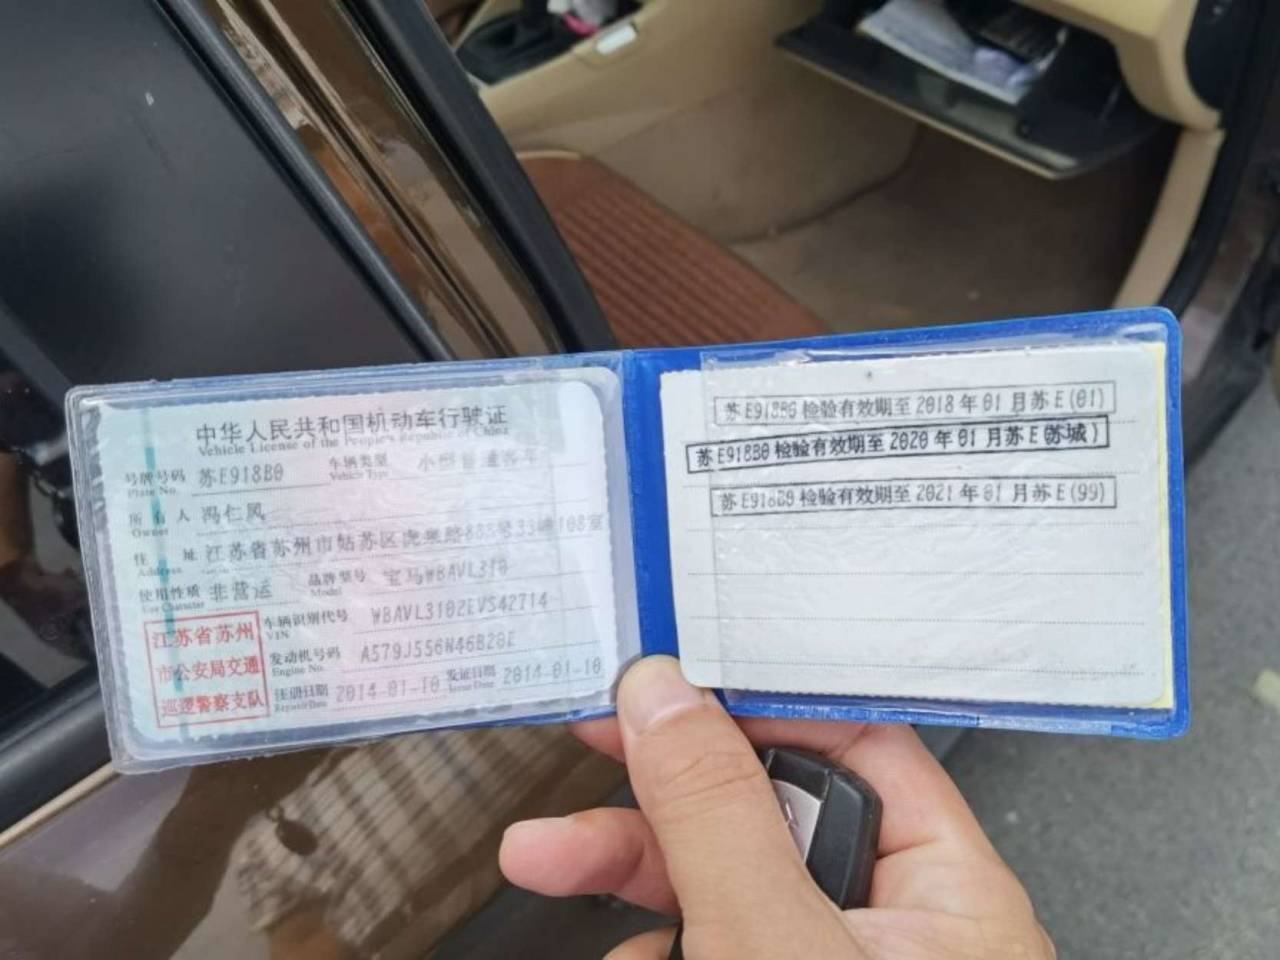 中华人民共和国机动车行驶证
Vehicle License of the People's Republic of China
号牌号码 苏E918B0 车辆类型 小型普通客车
Plate No. Vehicle Type
所有人 冯仁凤
Owner
住址 江苏省苏州市姑苏区虎泉路888号33幢108室
Address
使用性质 非营运 品牌型号 宝马WBAVL310
Use Character Model
江苏省苏州
市公安局交通
巡逻警察支队
车辆识别代号 WBAVL3102EVS42714
VIN
发动机号码 A579J556N46B20E
Engine No.
注册日期 2014-01-10 发证日期 2014-01-10
Register Date Issue Date
苏E918B0检验有效期至2018年01月苏E(01)
苏E918B0检验有效期至2020年01月苏E(苏城)
苏E918B0检验有效期至2021年01月苏E(99)